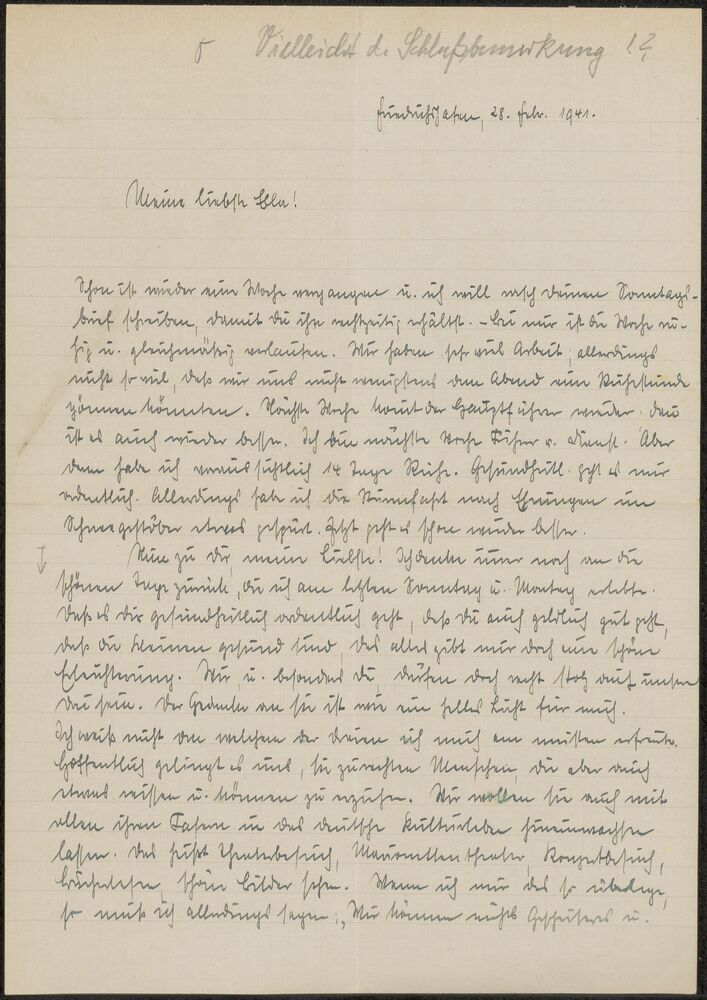 Vielleicht d. Schlußbemerkung !?
Friedrichshafen, 28. Febr. 1941.
Meine liebste Ella!
Schon ist wieder eine Woche vergangen u. ich will rasch deinen Sonntags-
brief schreiben, damit du ihn rechtzeitig erhältst. – Bei mir ist die Woche ru-
hig u. gleichmäßig verlaufen. Wir haben sehr viel Arbeit, allerdings
nicht so viel, daß wir uns nicht wenigstens am Abend eine Ruhestunde
gönnen könnten. Nächste Woche kommt der Hauptführer wieder, dann
ist es auch wieder besser. Ich bin nächste Woche Führer v. Dienst. Aber
dann habe ich voraussichtlich 14 Tage Ruhe. Gesundheitl. geht es mir
ordentlich. Allerdings habe ich die Fahrt nach im
Schneegestöber etwas gespürt. Jetzt geht es schon wieder besser.
Nun zu dir, meine Liebste! Ich denke immer noch an die
schönen Tage zurück, die ich am letzten Sonntag u. Montag erlebte.
Daß es dir gesundheitlich ordentlich geht, daß du auch geldlich gut geht,
daß die Kleinen gesund sind, das alles gibt mir doch eine schöne
Erleichterung. Wir, u. besonders du, dürfen doch recht stolz auf unsere
drei sein. Der Gedanke an sie ist wie ein helles Licht für mich.
Ich weiß nicht an welchem der dreien ich mich am meisten erfreute.
Hoffentlich gelingt es uns, sie zu rechten Menschen, die aber auch
etwas wissen u. können zu erziehen. Wir wollen sie auch mit
allen ihren Fasern in das deutsche Kulturleben hineinwachsen
lassen. Das heißt Theaterbesuch, Marionettentheater, Konzertbesuch,
Bücherlesen, schöne Bilder sehen. Wenn ich mir das so überlege,
so muß ich allerdings sagen: „Wir können nichts Gescheiteres u.